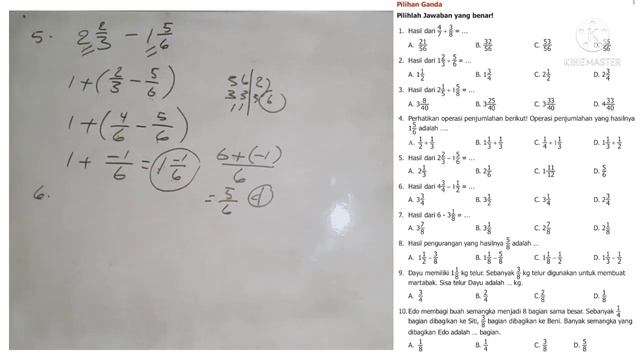 5. 2 2/3 - 1 5/6
1 + (2/3 - 5/6)
1 + (4/6 - 5/6)
1 + -1/6 = 1 -1/6
6 + (-1)
6
= 5/6
6.
3 6 2
3 3 3 6
1 1
Pilihan Ganda
Pilihlah Jawaban yang benar!
1. Hasil dari 4/7 + 3/8 = ...
A. 21/56 B. 32/56 C. 53/56 D. 55/56
2. Hasil dari 1 2/3 + 5/6 = ...
A. 1 1/2 B. 1 3/4 C. 2 1/2 D. 2 3/4
3. Hasil dari 2 1/5 + 1 5/8 = ...
A. 3 8/40 B. 3 25/40 C. 3 33/40 D. 4 33/40
4. Perhatikan operasi penjumlahan berikut! Operasi penjumlahan yang hasilnya
1 5/6 adalah ....
A. 1/2 + 1/3 B. 1 1/3 + 1/3 C. 1/4 + 1 1/3 D. 1 1/3 + 1/2
5. Hasil dari 2 2/3 - 1 5/6 = ...
A. 2 1/3 B. 2 1/6 C. 1 11/12 D. 5/6
6. Hasil dari 4 3/4 - 1 1/2 = ...
A. 3 3/4 B. 3 1/2 C. 3 1/4 D. 2 3/4
7. Hasil dari 6 - 3 1/8 = ...
A. 3 7/8 B. 3 1/8 C. 2 7/8 D. 2 1/8
8. Hasil pengurangan yang hasilnya 5/8 adalah ...
A. 1 1/2 - 3/8 B. 1 1/8 - 5/8 C. 1 1/8 - 1/2 D. 1 1/3 - 1/2
9. Dayu memiliki 1 1/8 kg telur. Sebanyak 3/8 kg telur digunakan untuk membuat
martabak. Sisa telur Dayu adalah ... kg.
A. 3/4 B. 2/4 C. 2/8 D. 1/8
10. Edo membagi buah semangka menjadi 8 bagian sama besar. Sebanyak 1/4
bagian dibagikan ke Siti, 3/8 bagian dibagikan ke Beni. Banyak semangka yang
dibagikan Edo adalah ... bagian.
A. 1/8 B. 1/4 C. 3/8 D. 5/8
KINEMASTER